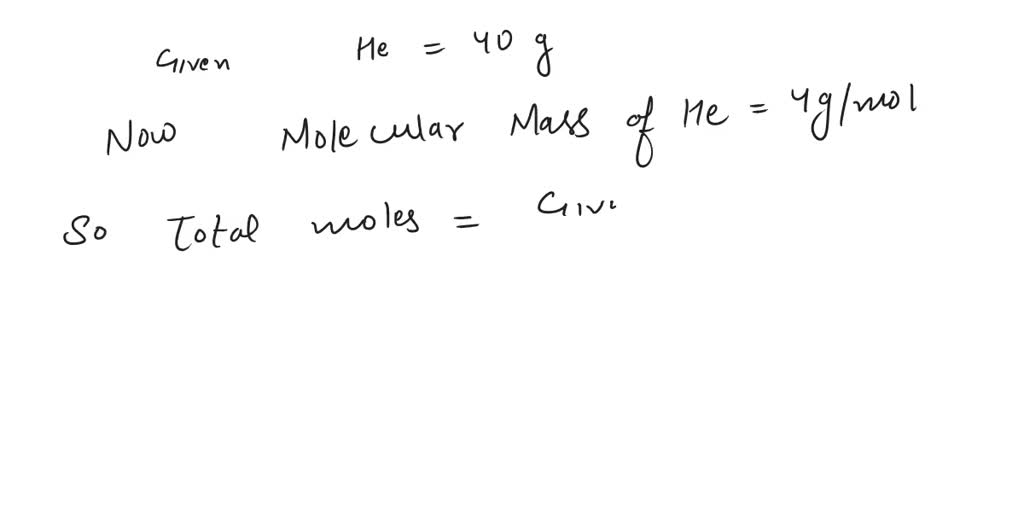 Given He = 40 g
Now Molecular Mass of He = 4g/mol
So Total moles = Giv